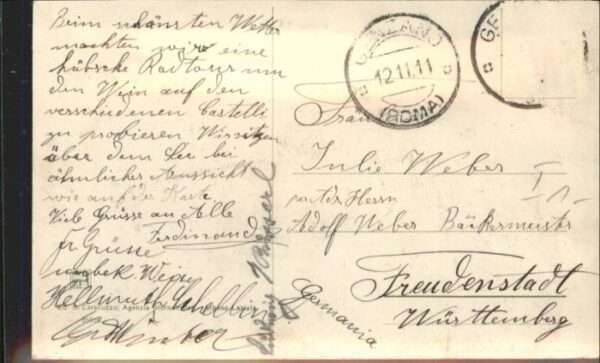 Beim schönsten Wetter
machten wir eine
hübsche Radtour um
den Wein auf den
verschiedenen Castelli
zu probieren Wir sitzen
über dem See bei
ähnlicher Aussicht
wie auf der Karte
Viele Grüsse an Alle
Ferdinand
Grüsse
Hellmuth
GENZANO
12.11.11
(ROMA)
GE
Frau
Julie Weber
Herrn
Adolf Weber Bäckermeister
I
Freudenstadt
Württemberg
Germania